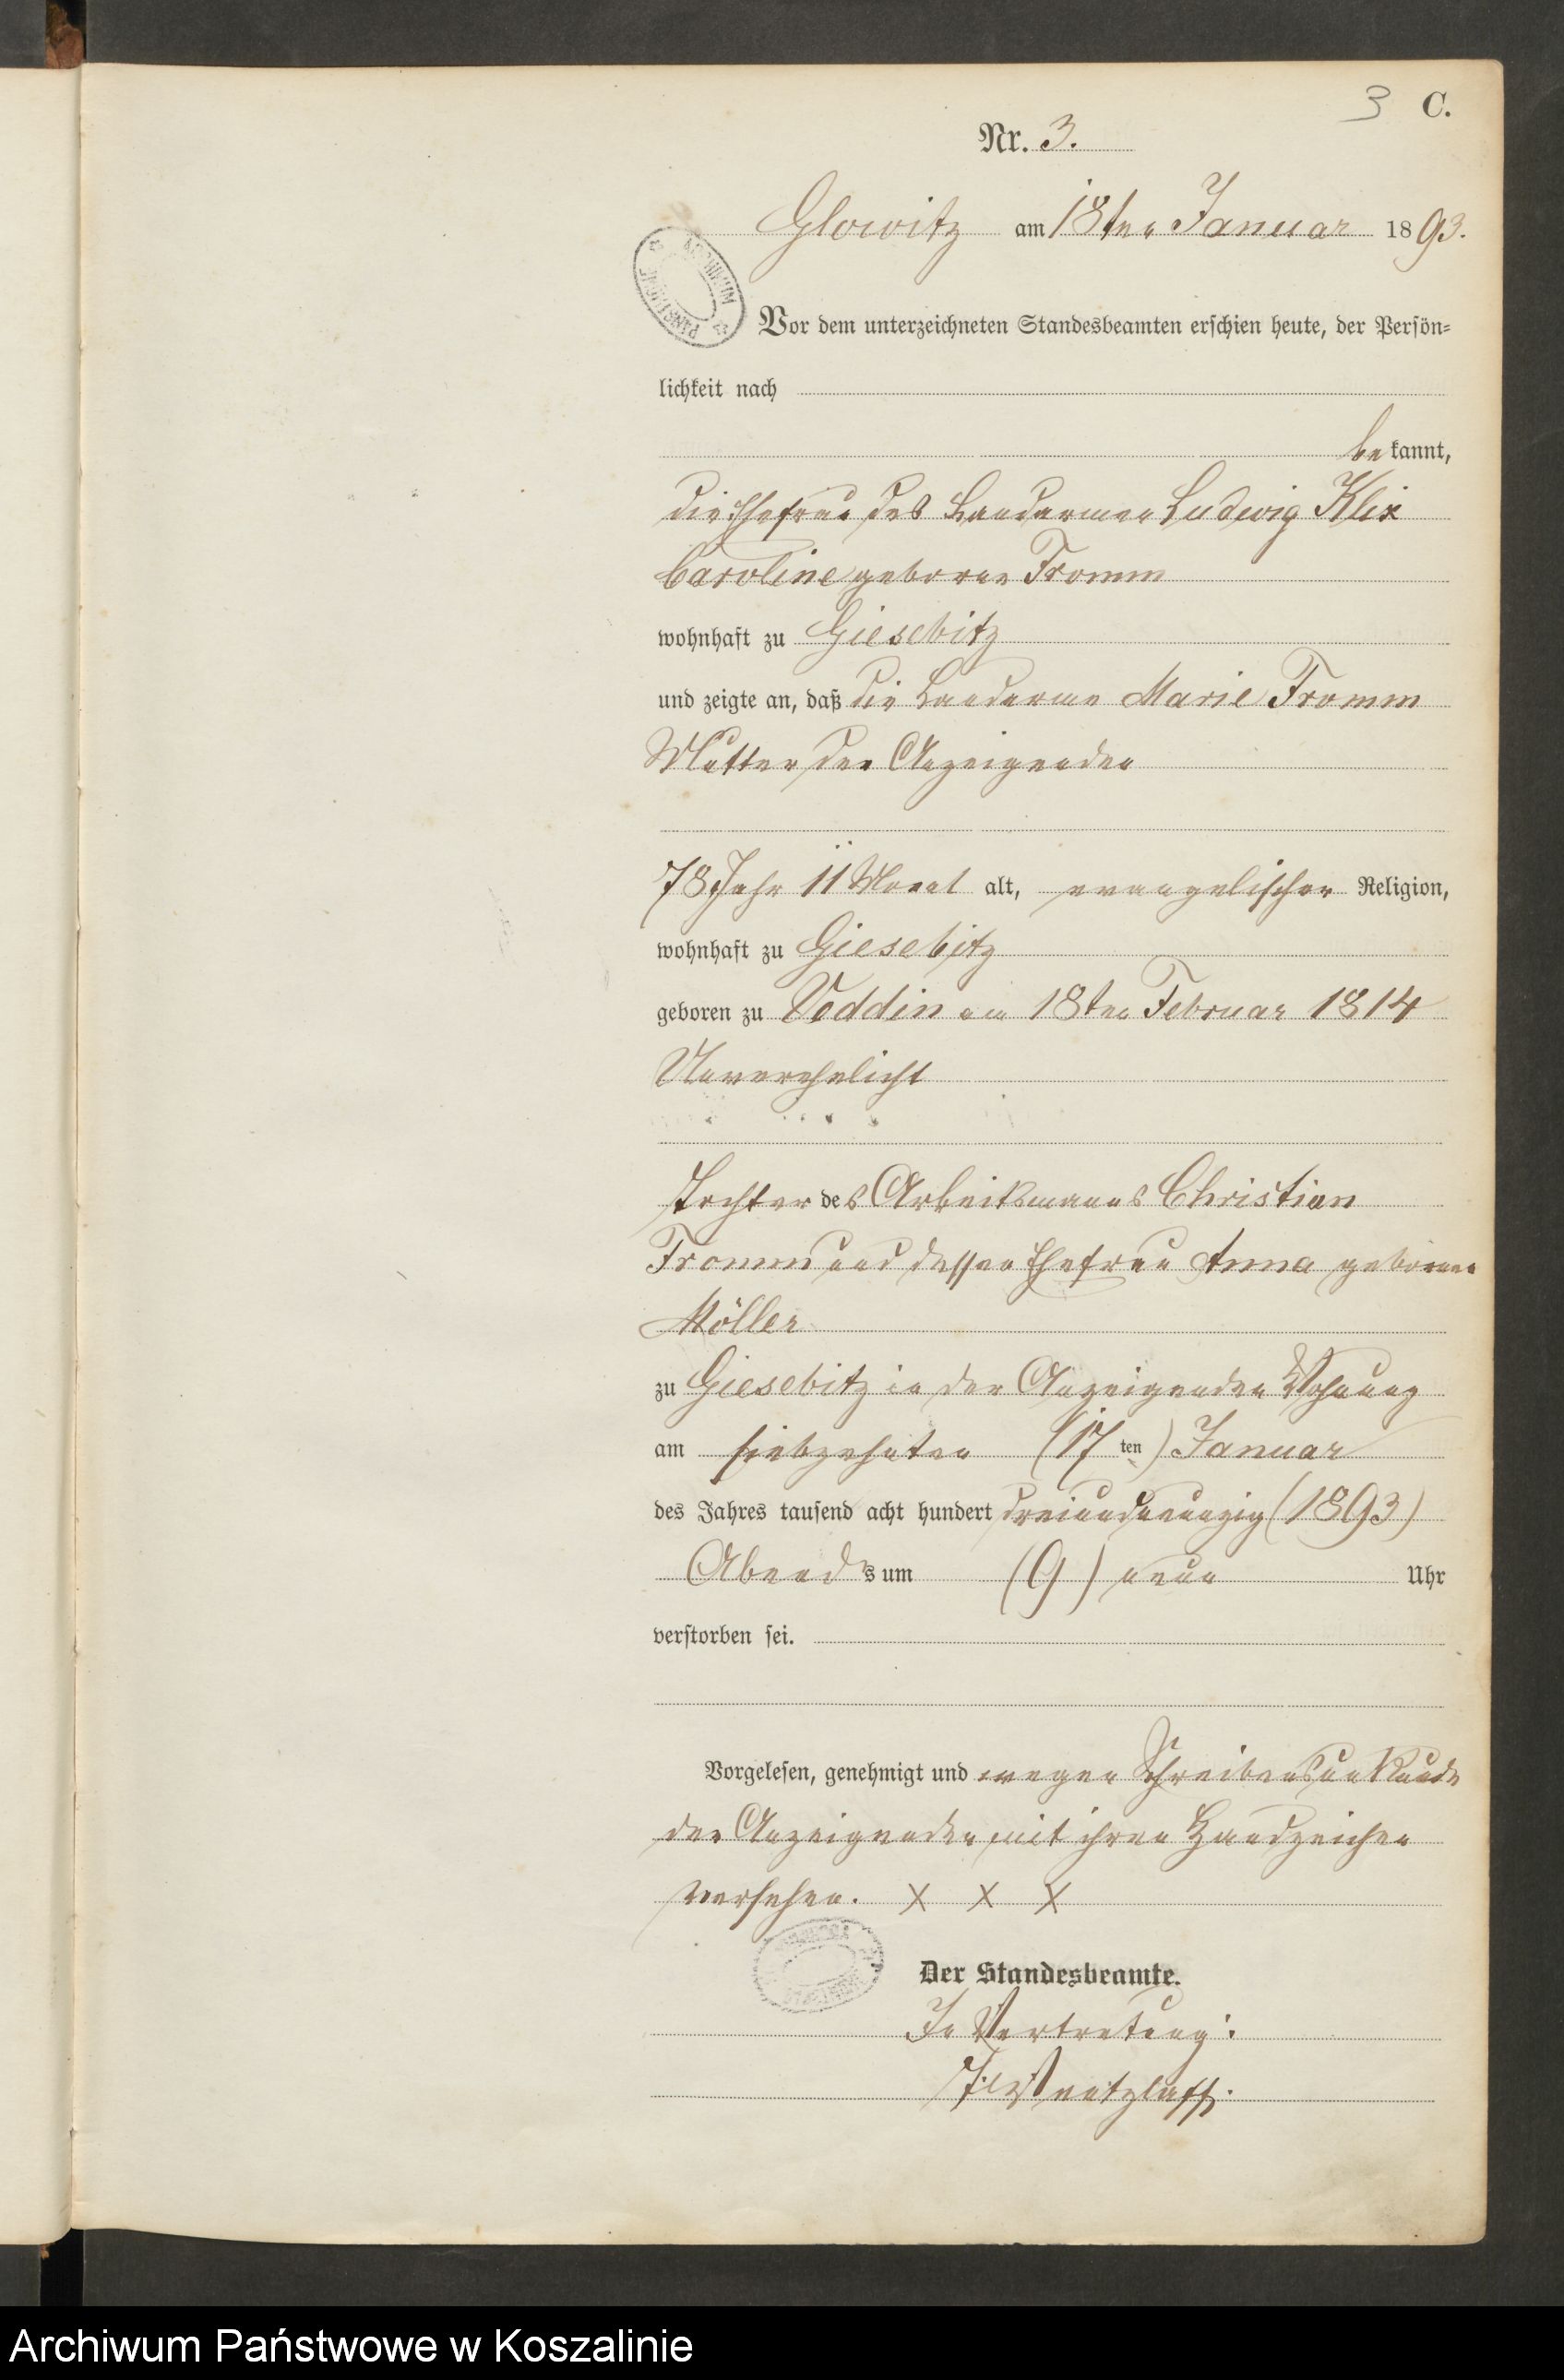 3 C.
Nr. 3.
Glowitz am 18ten Januar 1893.
Vor dem unterzeichneten Standesbeamten erschien heute, der Persön=
lichkeit nach
bekannt,
die Ehefrau des Landarmen Ludwig Klix
Caroline geborne Fromm
wohnhaft zu Giesebitz
und zeigte an, daß die Landarme Marie Fromm
Mutter der Anzeigenden
78 Jahr 11 Monat alt, evangelischer Religion,
wohnhaft zu Giesebitz
geboren zu Veddin am 18ten Februar 1814
Unverehelicht
Tochter des Arbeitsmanns Christian
Fromm und dessen Ehefrau Anna geborne
Möller
zu Giesebitz in der Anzeigenden Wohnung
am siebzehnten (17ten) Januar
des Jahres tausend acht hundert dreiundneunzig (1893)
Abends um (9) neun Uhr
verstorben sei.
Vorgelesen, genehmigt und wegen Schreibensunkunde
der Anzeigenden mit ihren Handzeichen
versehen. X X X
Der Standesbeamte.
In Vertretung:
Wetzlaff.
Archiwum Państwowe w Koszalinie